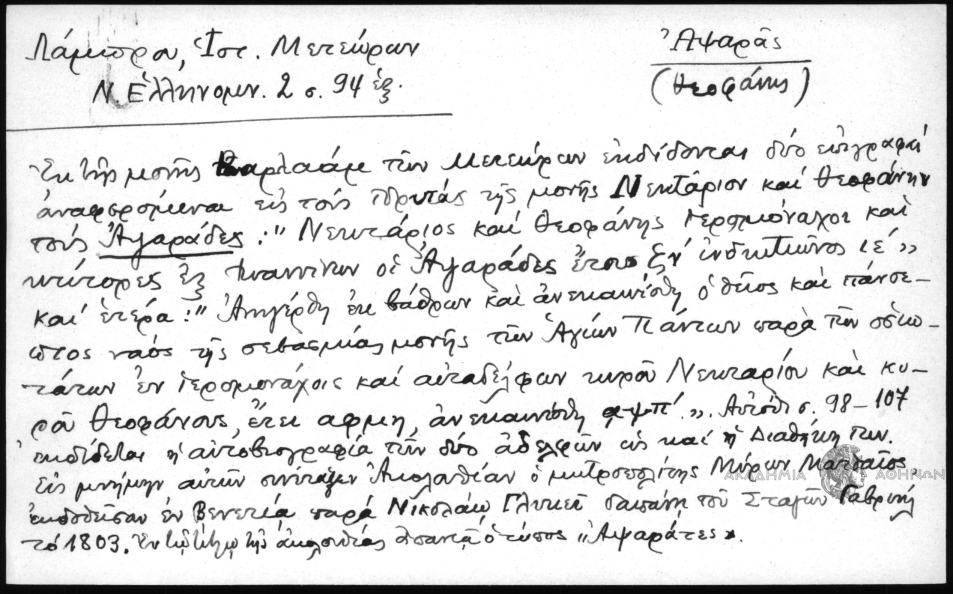 Λάμπρου, Ἱστ. Μετεώρων
Ν. Ἑλληνομν. 2 σ. 94 ἑξ.
Ἀψαρᾶς
(Θεοφάνης)
Ἐκ τῆς μονῆς Βαρλαὰμ τῶν Μετεώρων ἐκδίδονται δύο ἐπιγραφαί
ἀναφερόμεναι εἰς τοὺς ἱδρυτὰς τῆς μονῆς Νεκτάριον καὶ Θεοφάνην
τοὺς Ἀψαράδες: "Νεκτάριος καὶ Θεοφάνης ἱερομόναχοι καὶ
κτίτορες ἐξ Ἰωαννίνων οἱ Ἀψαράδες ἔτους ξν' ἰνδικτιῶνος ιε'"
καὶ ἑτέρα: "Ἀνηγέρθη ἐκ βάθρων καὶ ἀνεκαινίσθη ὁ θεῖος καὶ πάνσε-
πτος ναὸς τῆς σεβασμίας μονῆς τῶν Ἁγίων Πάντων παρὰ τῶν ὁσιω-
τάτων ἐν ἱερομονάχοις καὶ αὐταδέλφων κυροῦ Νεκταρίου καὶ κυ-
ροῦ Θεοφάνους, ἔτει αφμη, ἀνεκαινίσθη αψπ'." Αὐτόθι σ. 98-107
ἐκδίδεται ἡ αὐτοβιογραφία τῶν δύο ἀδελφῶν ὡς καὶ ἡ Διαθήκη των.
Εἰς μνήμην αὐτῶν συνέταξεν Ἀκολουθίαν ὁ μητροπολίτης Μύρων Ματθαῖος,
ἐκδοθεῖσαν ἐν Βενετίᾳ παρὰ Νικολάῳ Γλυκεῖ δαπάνῃ τοῦ Σταγῶν Γαβριὴλ
τὸ 1803. Ἐν τῷ τίτλῳ τῆς ἀκολουθίας ἀπαντᾷ ὁ τύπος "Ἀψαράτες".
ΑΚΑΔΗΜΙΑ ΑΘΗΝΩΝ